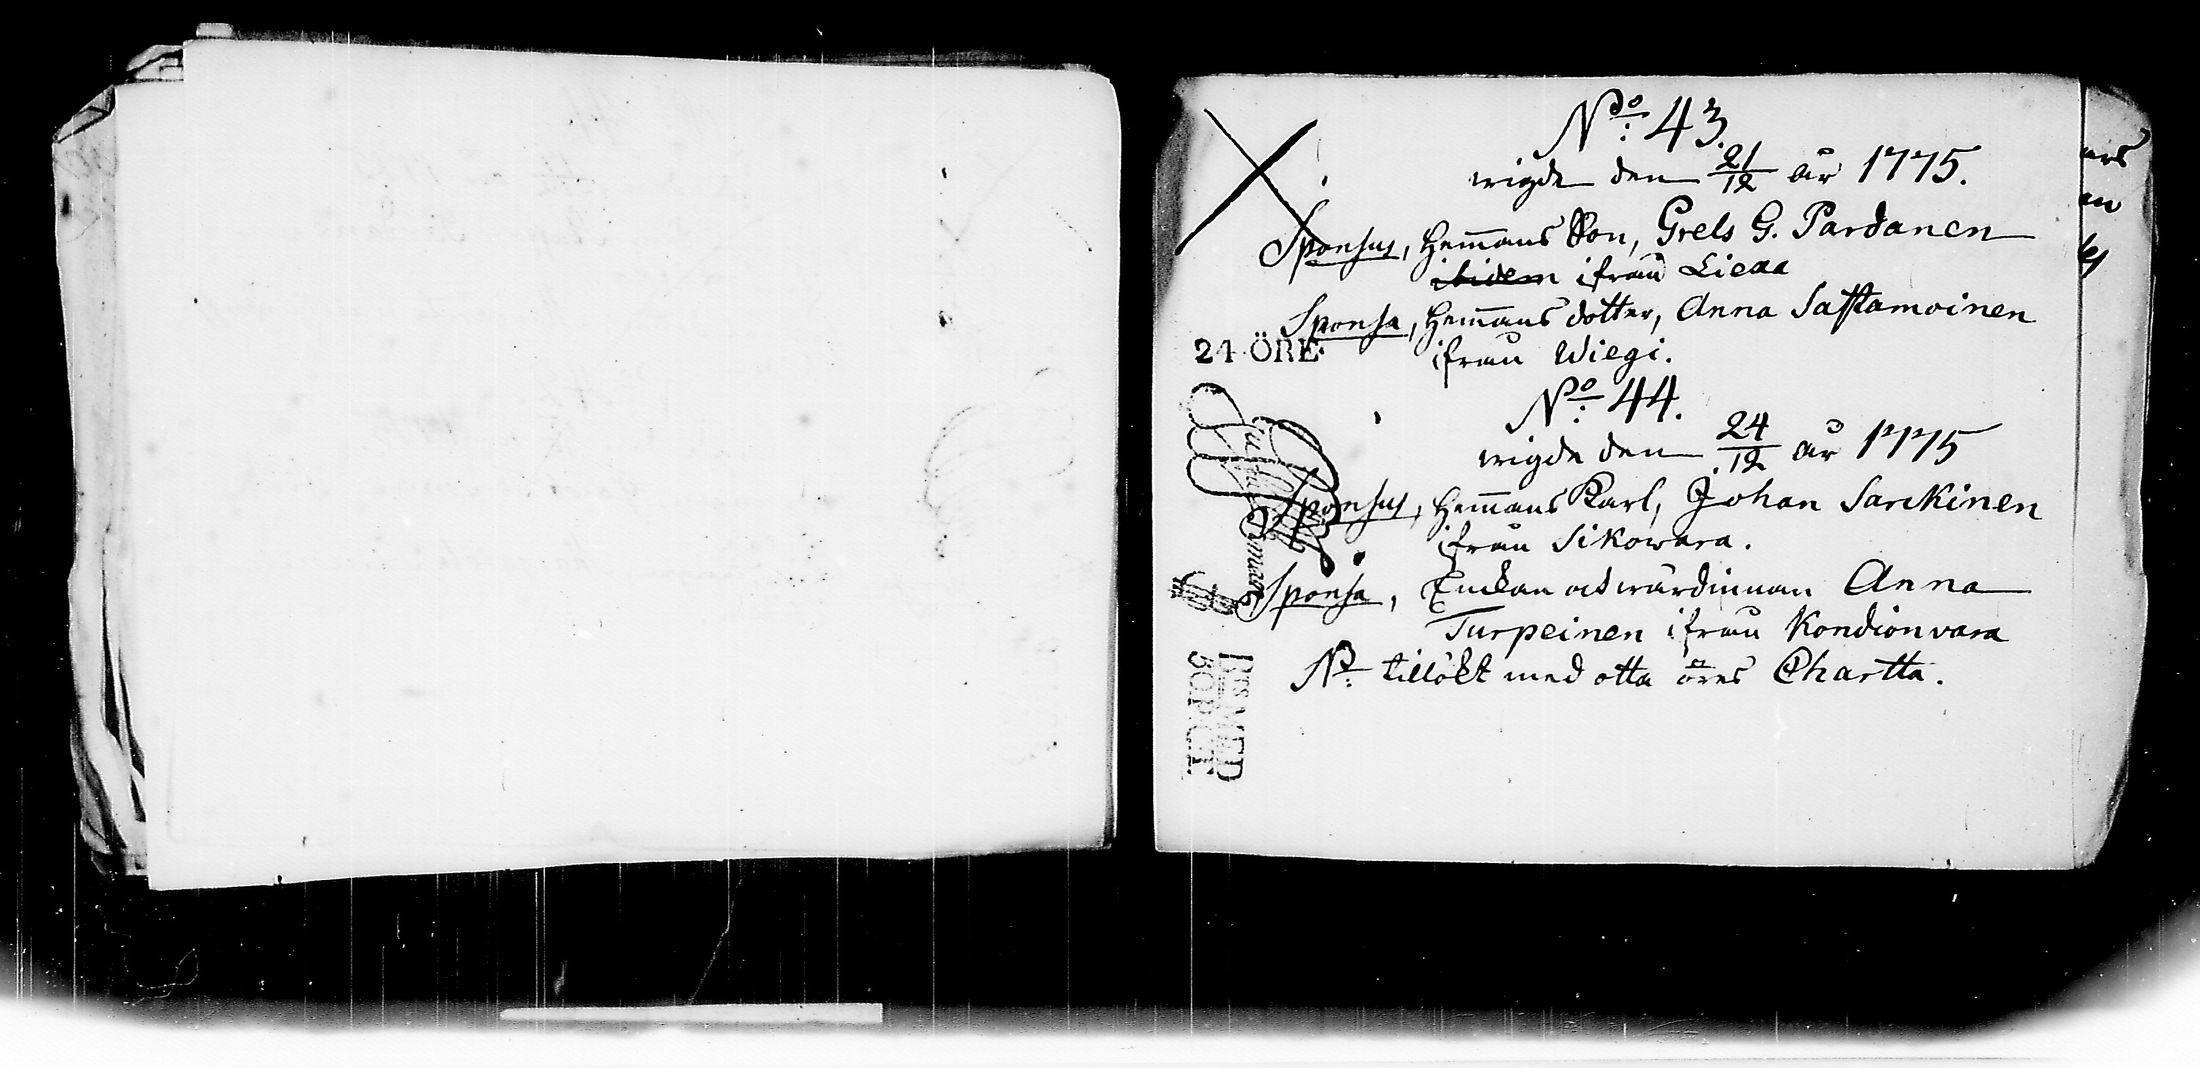 No: 43.
wigde den 21/12 år 1775.
Sponsus, Hem̅ans Son, Grels G. Pardanen
ibidem ifrån Liexa
Sponsa, Hem̅ans dotter, Anna Sastamoinen
ifrån Wiegi.
24 ÖRE
No: 44.
wigde den 24/12 år 1775
Sponsus, Hem̅ans Karl, Johan Sarkinen
ifrån Sikowara.
Sponsa, Enckan och wärdinnan Anna
Turpeinen ifrån Kondionvara
No: tillökt med otta öres Chartta.